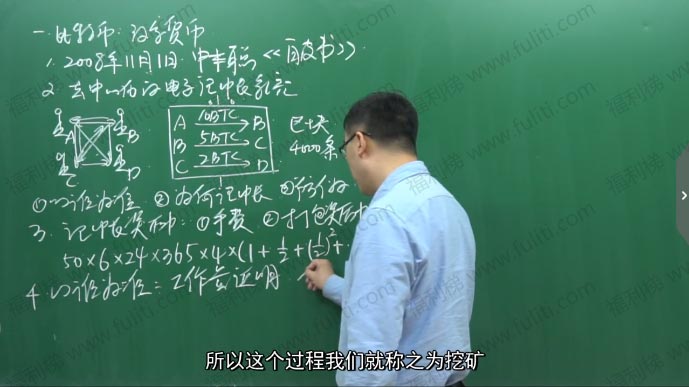 一.比特币:数字货币
1. 2008年11月1日 中本聪《白皮书》
2. 去中心的电子记账系统
A 10BTC B
B 5BTC C
C 2BTC D
巴士块
4000条
A B C D
①以谁为准 ②为何记账 ③防伪
3. 记账奖励:①手续 ②打包奖励
50×6×24×365×4×(1+1/2+(1/2)²+
4. 以谁为准:工作量证明
所以这个过程我们就称之为挖矿
福利梯 www.fuliti.com